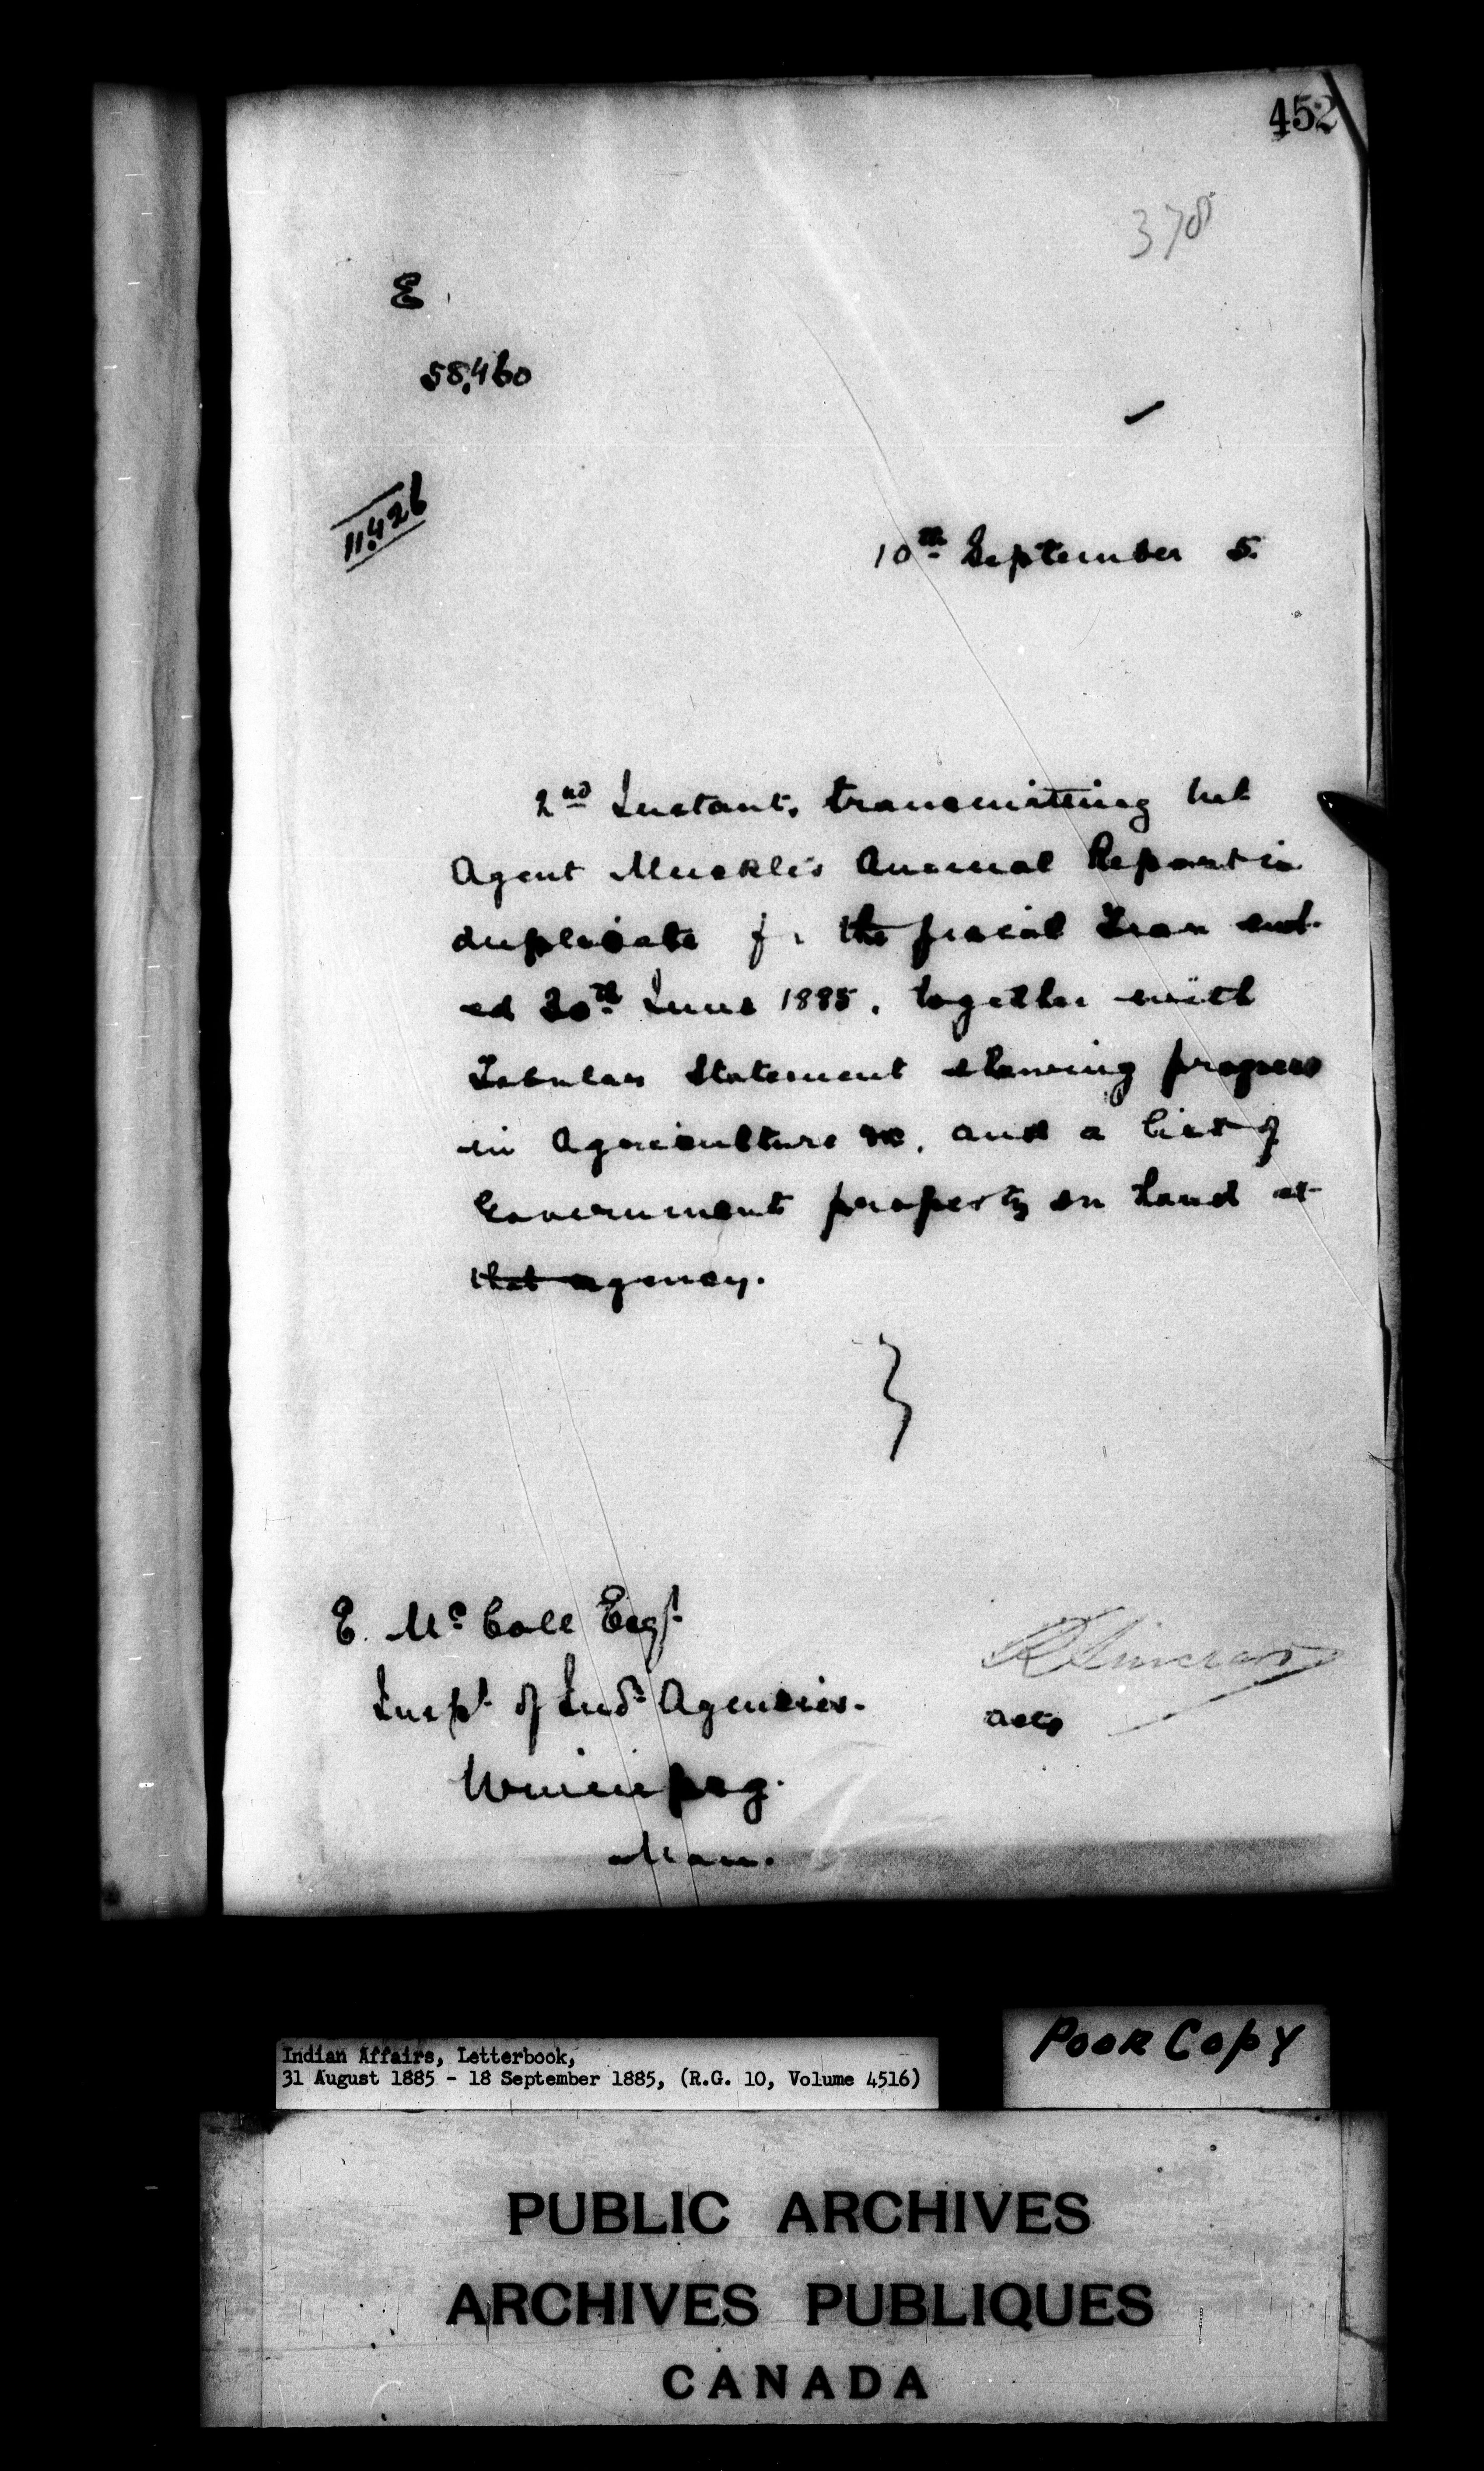 452
378
E
58,460
11,426
10th September 5.
2nd Instant, transmitting
Agent Muckle's Annual Report in
duplicate f the fiscal Year end-
ed 30th June 1885, together with
Tabular Statement showing progress
in Agriculture &c, and a list of
Government property on hand at
that agency.
E. McColl Esqr.
Inspt. of Indn Agencies.
Winnipeg.
Man.
R Sinclair
Actg
Indian Affairs, Letterbook,
31 August 1885 - 18 September 1885, (R.G. 10, Volume 4516)
POOR COPY
PUBLIC ARCHIVES
ARCHIVES PUBLIQUES
CANADA